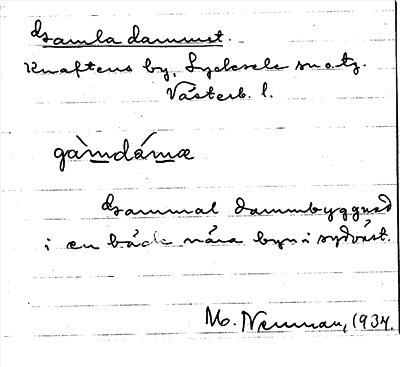 Gamla dammet.
Knaftens by, Lycksele sn o. tg.
Västerb. l.
gàmdámæ
Gammal dammbyggnad
i en bäck nära byn i sydväst.
M. Neuman, 1934.